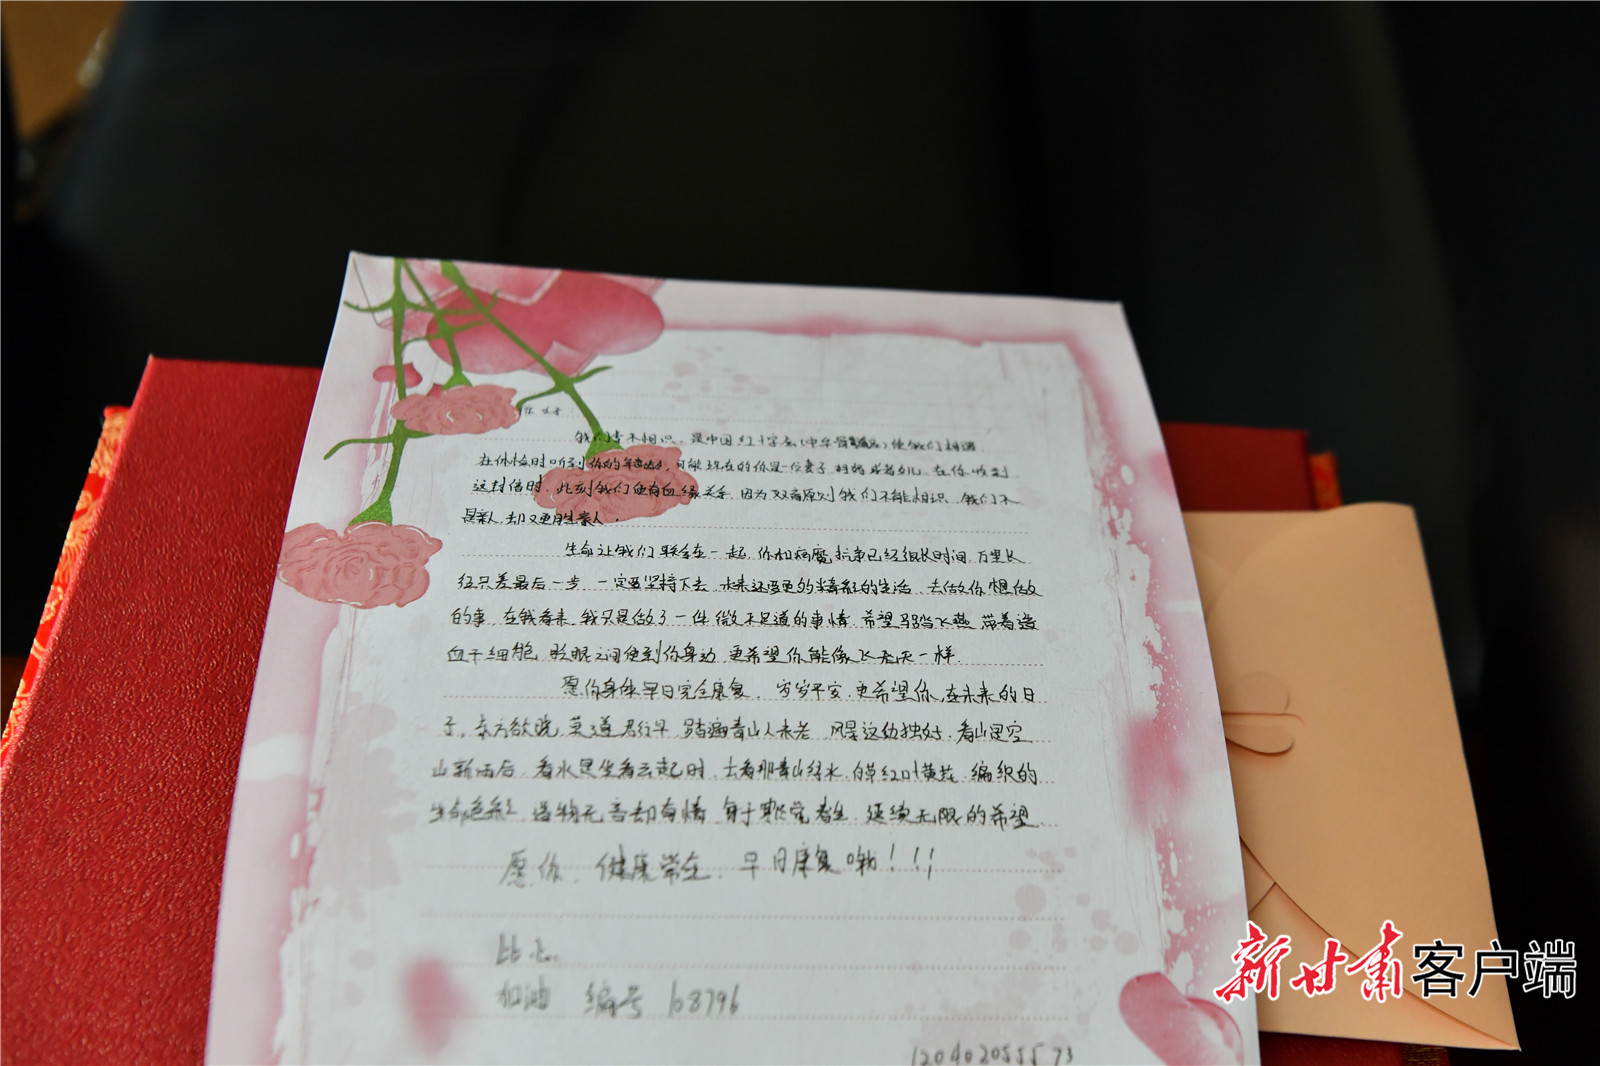 你好
我们素不相识，是中国红十字会（中华骨髓库）使我们相遇
在体检时听到你的年龄，可能现在的你是一位妻子、妈妈或者女儿，在你收到
这封信时，此刻我们便有血缘关系，因为双盲原则我们不能相识，我们不
是亲人，却又更胜亲人.
生命让我们联系在一起，你和病魔抗争已经很长时间，万里长
征只差最后一步，一定要坚持下去，未来还要更多精彩的生活，去做你想做
的事，在我看来，我只是做了一件微不足道的事情，希望马踏飞燕带着造
血干细胞，眨眼之间便到你身边，更希望你能像飞天一样.
愿你身体早日完全康复，岁岁平安，更希望你，在未来的日
子，东方欲晓，莫道君行早，踏遍青山人未老，风景这边独好，看山是空
山新雨后，看水是坐看云起时，去看那青山绿水，白草红叶黄花，编织的
生命色彩，造物无言却有情，每于寒尽觉春生，延续无限的希望.
愿你，健康常在，早日康复哟！！！
此上.
加油 编号 168796
12040205555 73
新甘肃客户端